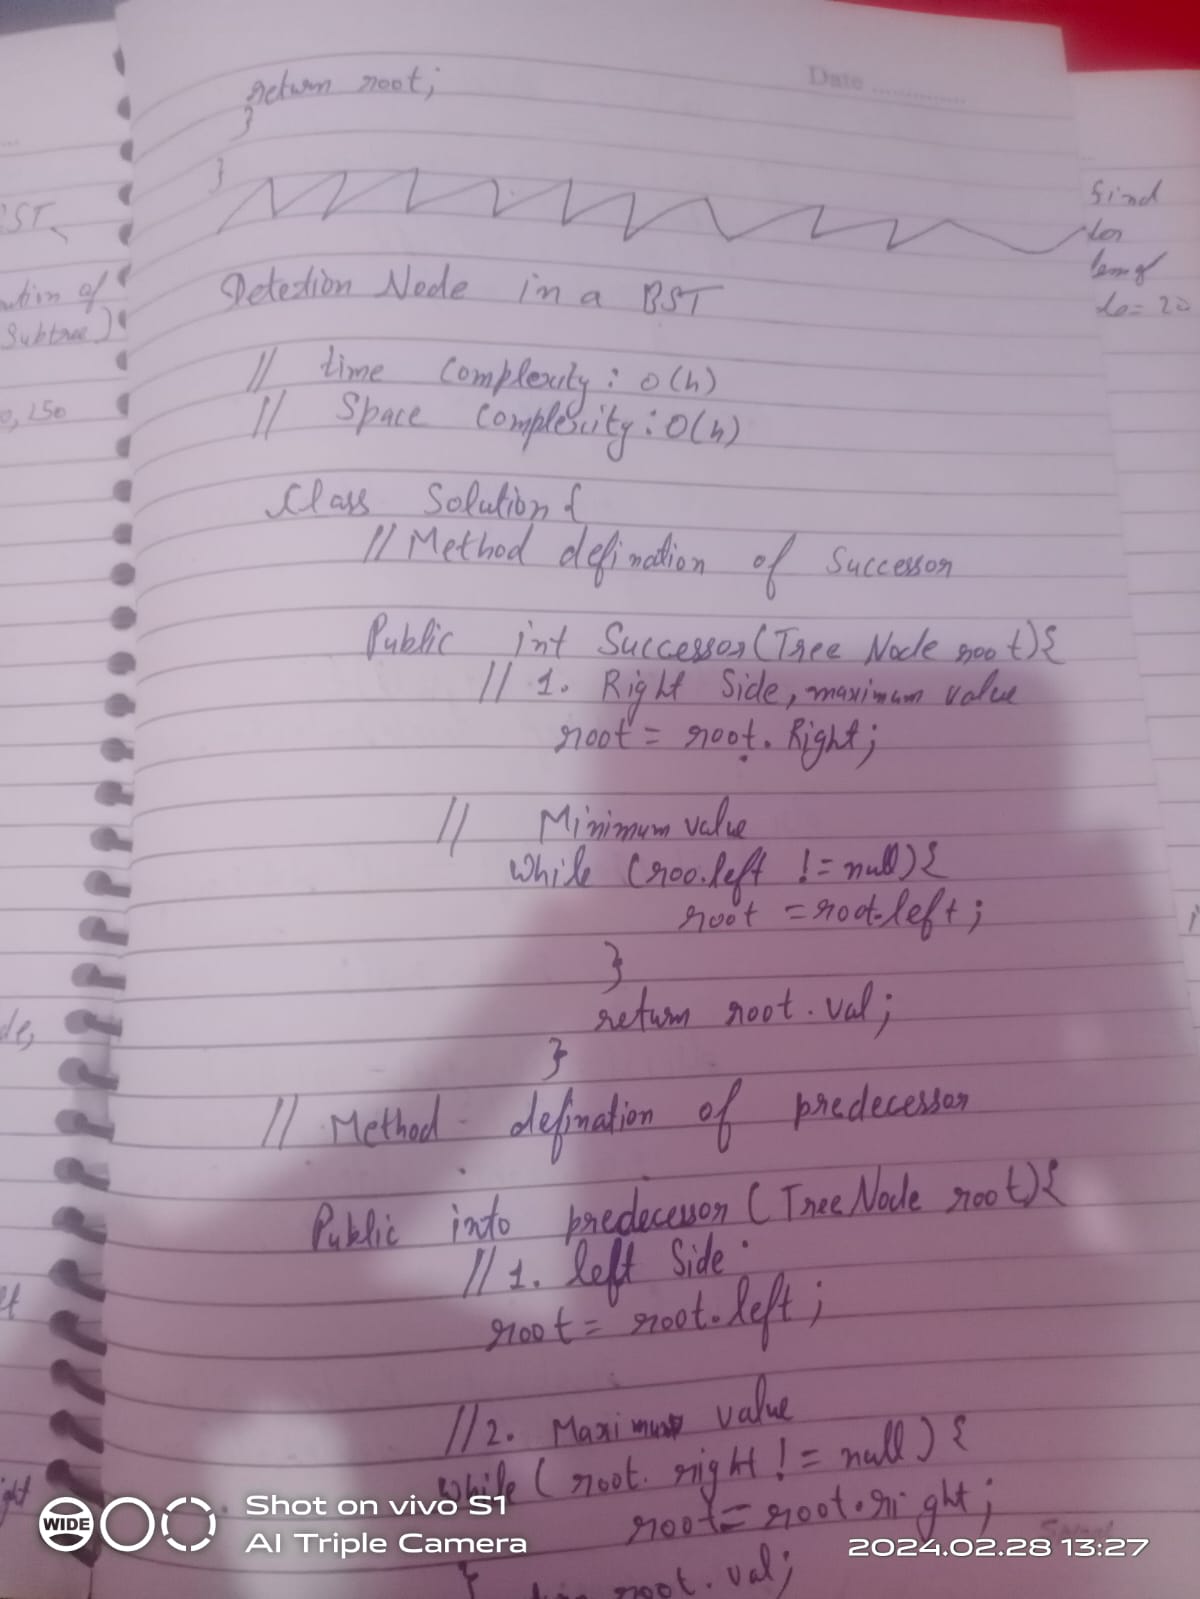 return root;
Date
}
}
Deletion Node in a BST
// time complexity : O(h)
// Space complexity : O(h)
Class Solution {
// Method defination of Successor
Public int Successor (Tree Node root) {
// 1. Right Side, maximum value
root = root. Right;
// Minimum value
While (roo.left != null) {
root = root.left;
}
return root. val;
}
// Method defination of predecessor
Public into predecessor (TreeNode root) {
// 1. left Side
root = root.left;
// 2. Maximum value
While ( root. right != null ) {
root = root.right;
}
root. val;
BST
ution of
Subtree)
0, 150
de,
ft
ght
find
for
20
WIDE
Shot on vivo S1
AI Triple Camera
2024.02.28 13:27